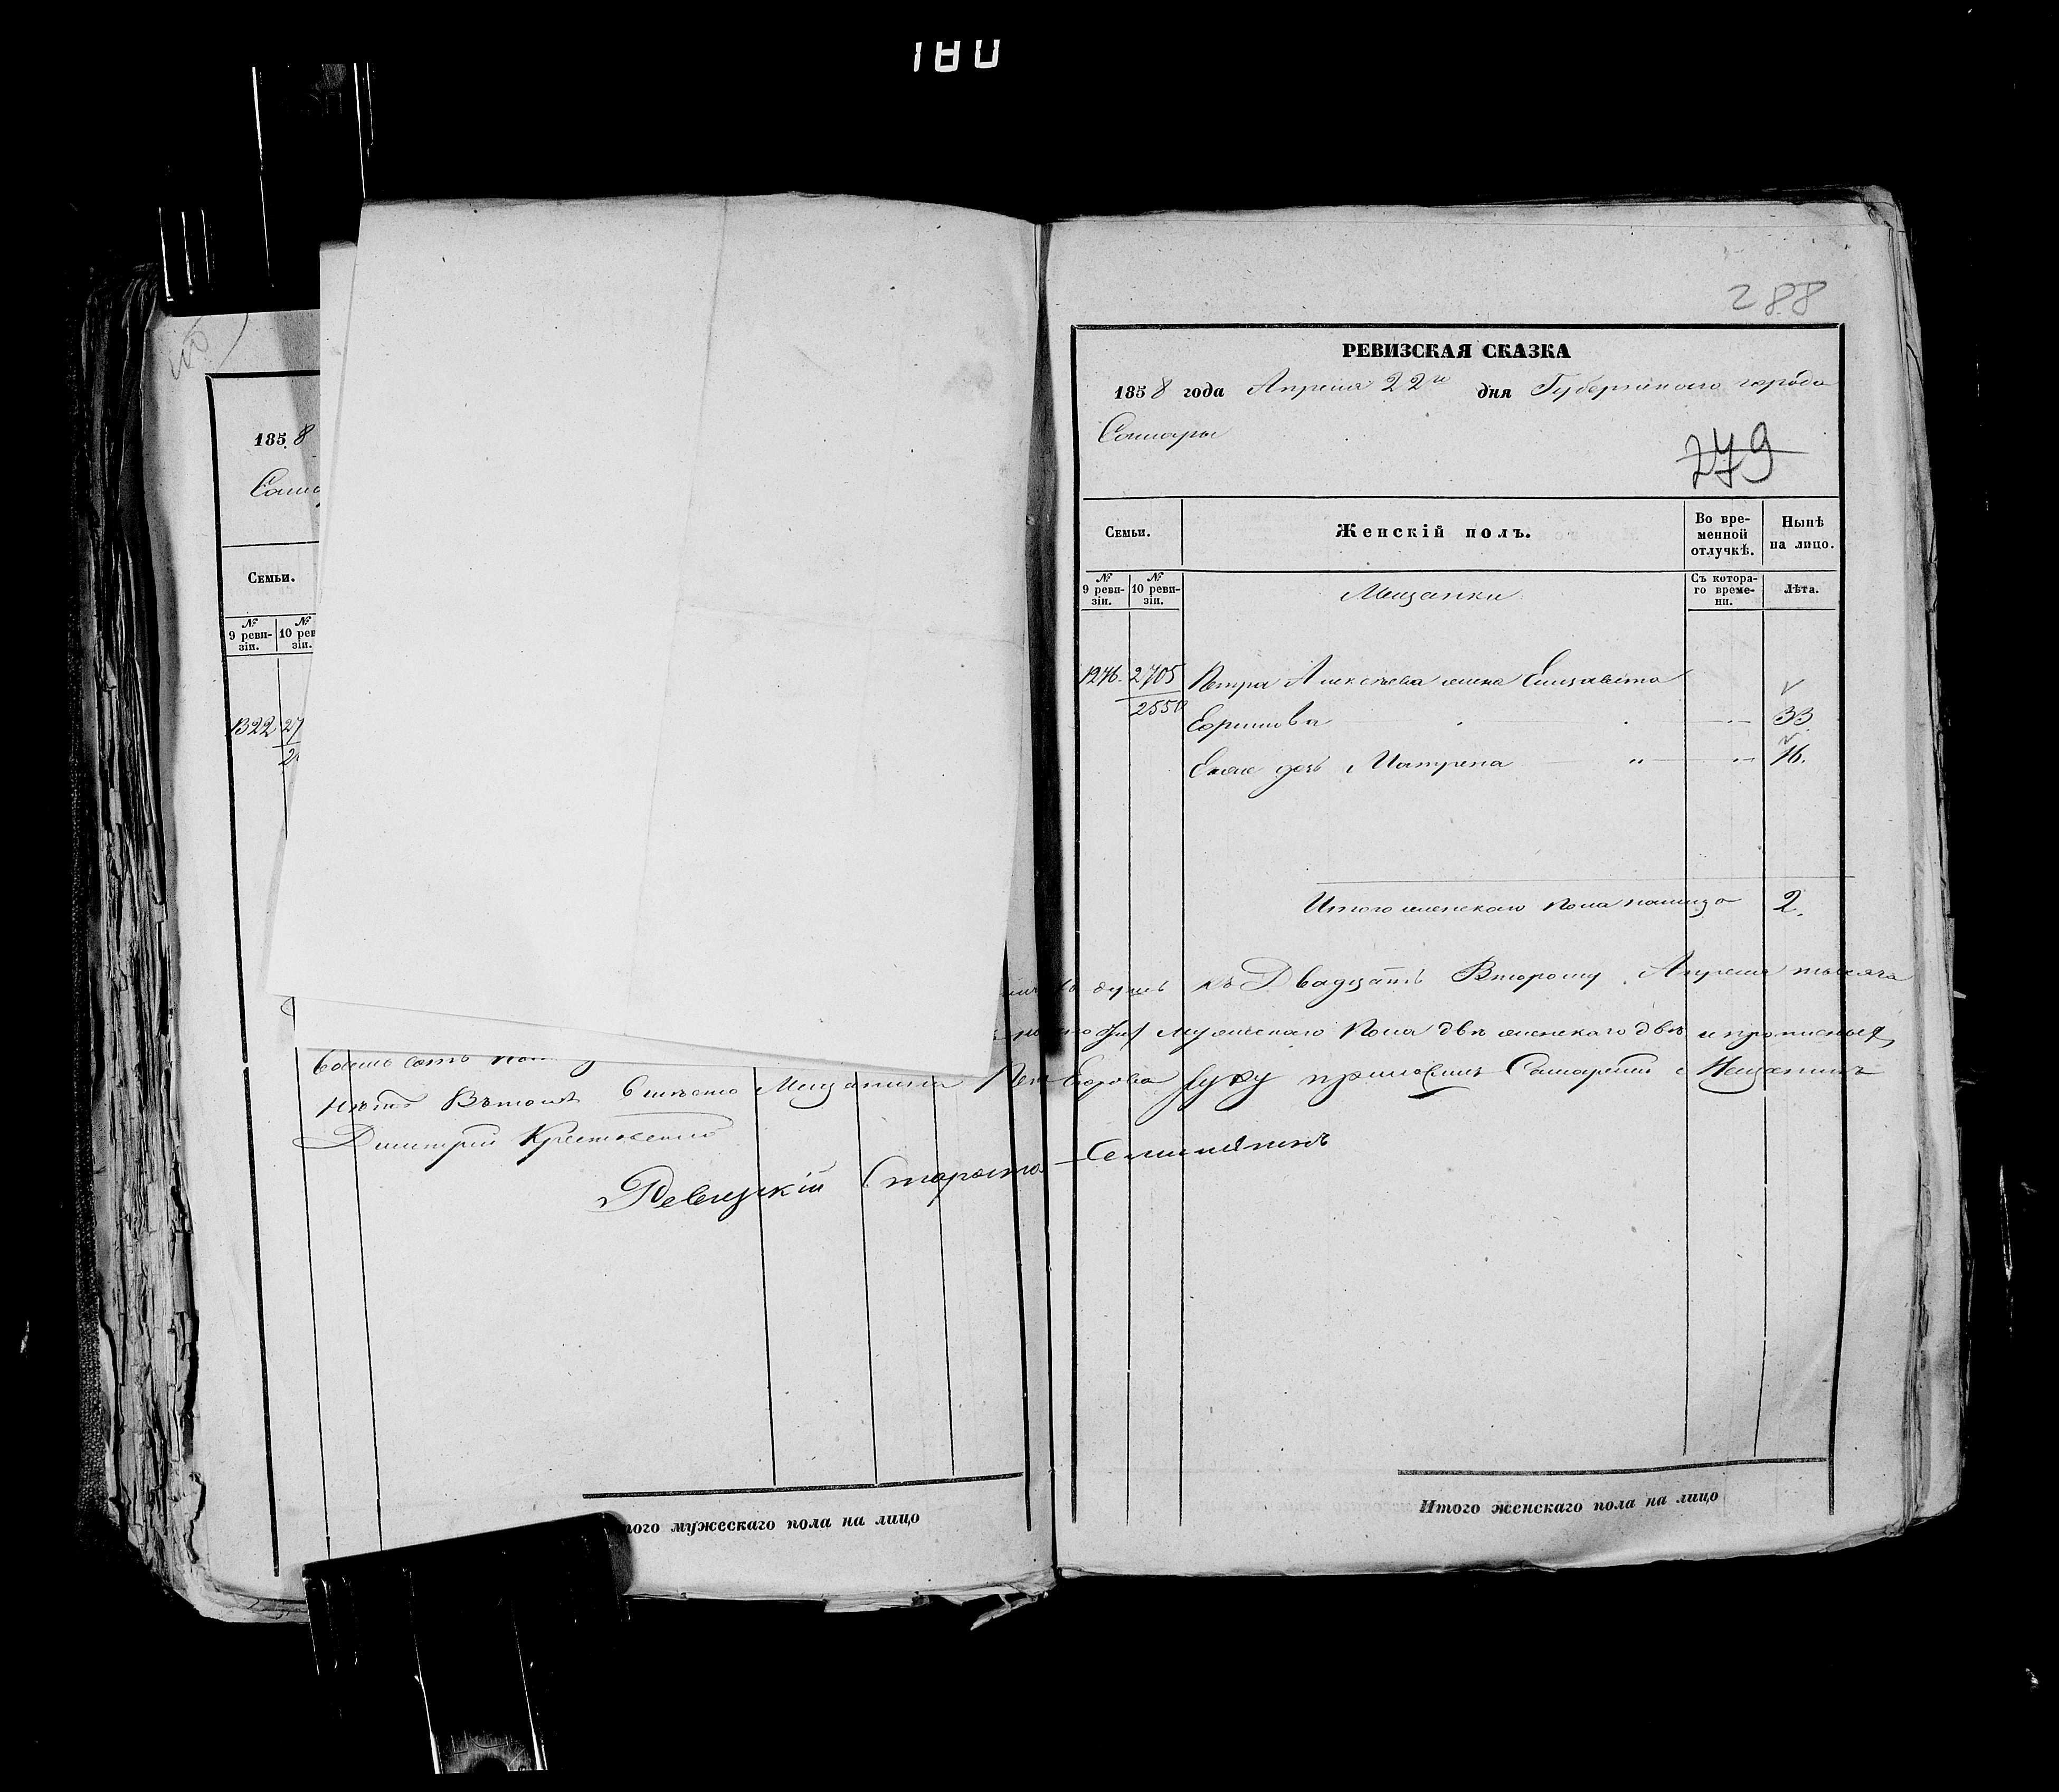 180
185 8
Сама
Семьи.
№ 9 ревизіи.
№ 10 рев зіи.
1322 27
восемь сотъ
нѣтъ Въ томъ Вмѣсто Мещанина Пет Егорова руку приложилъ Самарскій Мещанинъ
Дмитрій Крестовскій
Ревизскій Староста Селиштинъ
того мужескаго пола на лицо
288
РЕВИЗСКАЯ СКАЗКА
1858 года Апреля 22го дня Губернскаго города
Самары
279
Семьи.
Женскій полъ.
Во временной отлучкѣ.
Нынѣ на лицо.
№ 9 ревизіи.
№ 10 ревизіи.
Мещанки
Съ котораго времени.
Лѣта.
1246. 2705 Петра Алексѣева жена Елизавета
2550 Ефимова 33
Ея же дочь Матрена " 16.
Итого женскаго пола налицо 2.
душъ къ Двадцать Второму Апреля тысяча
мужескаго пола двѣ женскаго двѣ и прописныя
Итого женскаго пола на лицо